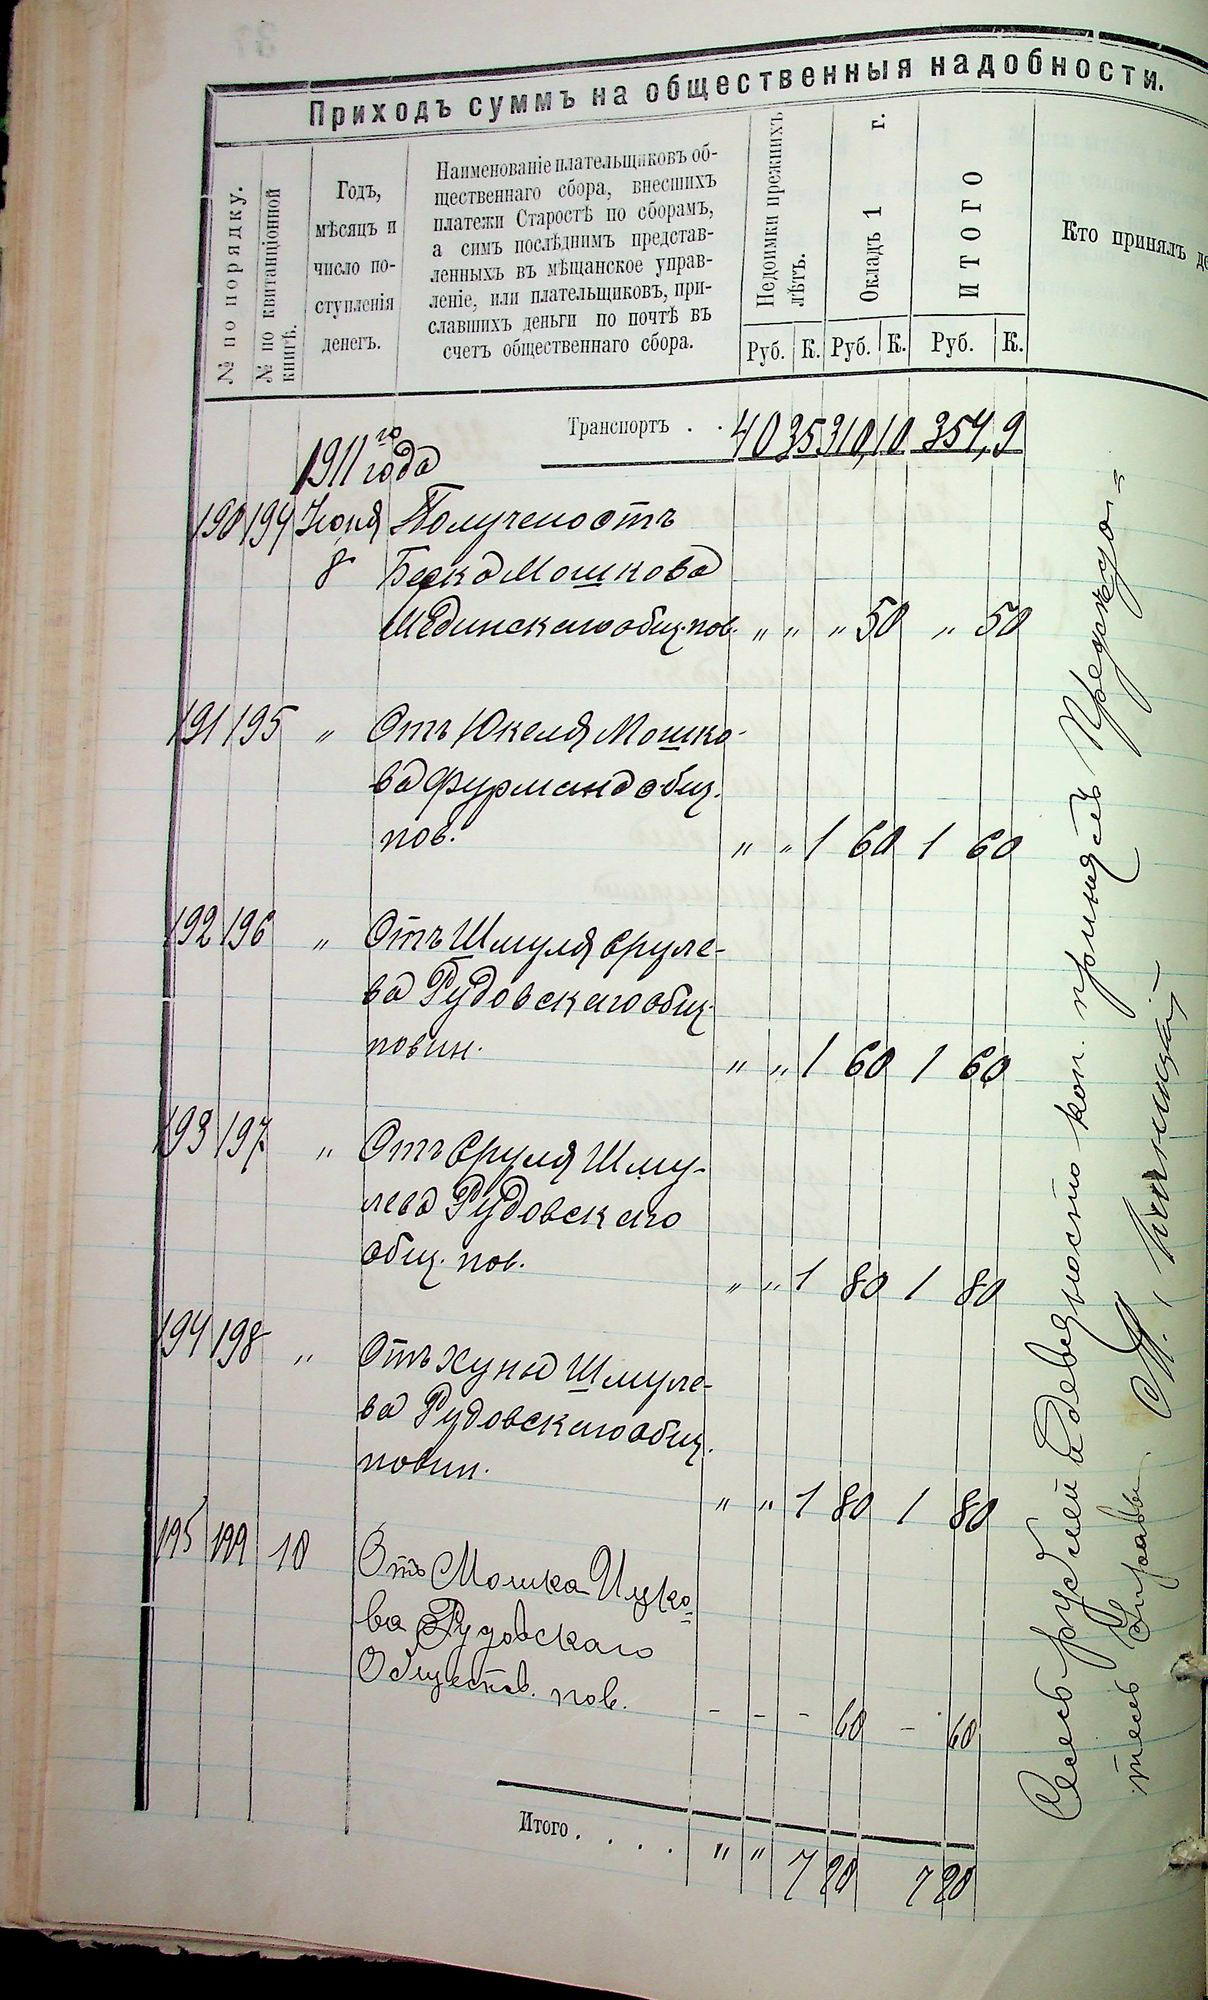 Приходъ суммъ на общественныя надобности.
№ по порядку.
№ по квитанціонной книгѣ.
Годъ,
мѣсяцъ и
число по-
ступленія
денегъ.
Наименованіе плательщиковъ об-
щественнаго сбора, внесшихъ
платежи Старостѣ по сборамъ,
а симъ послѣднимъ представ-
ленныхъ въ мѣщанское управ-
леніе, или плательщиковъ, при-
славшихъ деньги по почтѣ въ
счетъ общественнаго сбора.
Недоимки прежнихъ
лѣтъ.
Окладъ 1 г.
ИТОГО
Кто принялъ де
Руб. К. Руб. К. Руб. К.
Транспортъ . . 40 35 310 10 354, 9
1911го года
190 194 Іюня Получено отъ
8 Берка Мошкова
Мединскаго общ. пов. " " " 50 " 50
191 195 " Отъ Юкеля Мошко-
ва Фурмана общ.
пов. " " 1 60 1 60
192 196 " Отъ Шмуля Сруле-
ва Рудовскаго общ.
повин. " " 1 60 1 60
193 197 " Отъ Сруля Шму-
лева Рудовскаго
общ. пов. " " 1 80 1 80
194 198 " Отъ Хуны Шмуле-
ва Рудовскаго общ.
повин. " " 1 80 1 80
195 199 10 Отъ Мошка Ицко-
ва Рудовскаго
Обществ. пов. - - - 60 - 60
Итого . . . . " " 7 90 7 90
Семь рублей девяносто коп. принялъ Предсѣда=
тель Управы